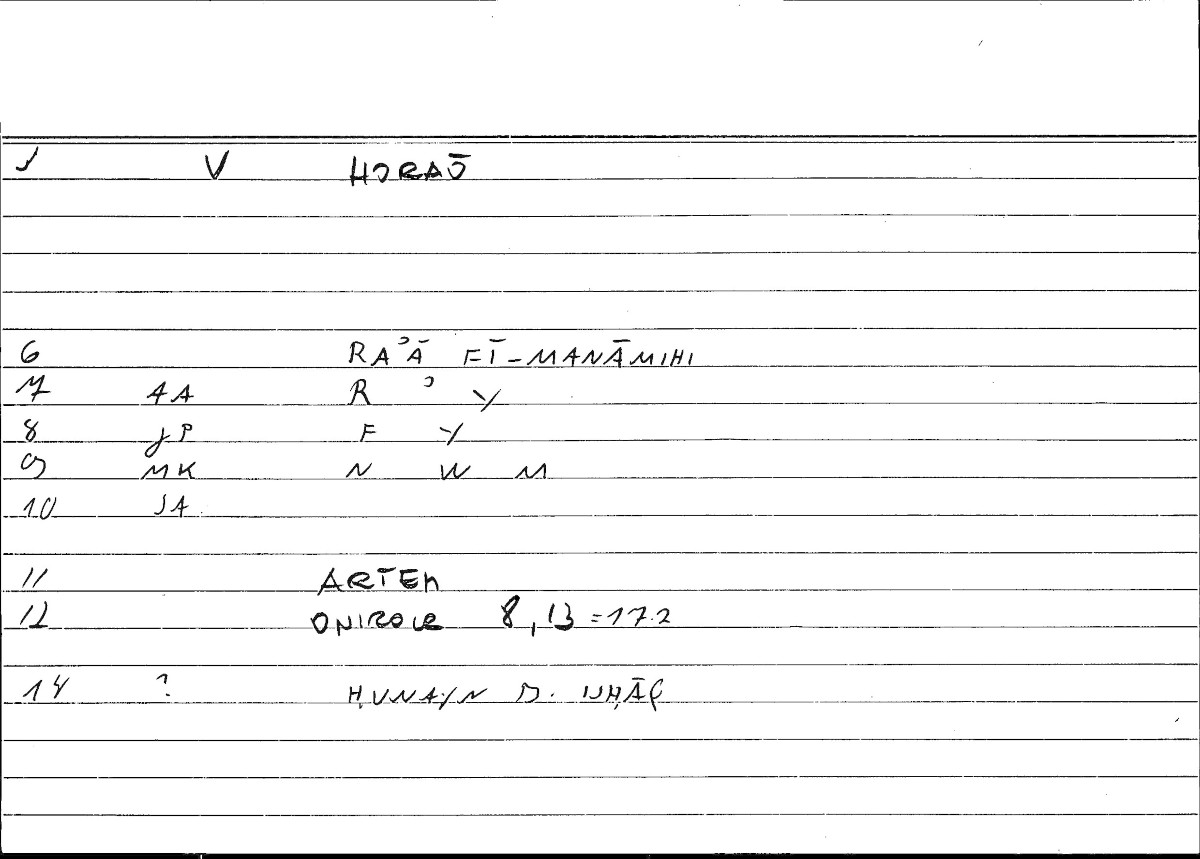 1 V HORAŌ
6 RAʾĀ FĪ-MANĀMIHI
7 AA R ʾ Y
8 JP F Y
9 MK N W M
10 JA
11 ARTEM
12 ONIROCR 8,13 = 17.2
14 ? ḤUNAYN B. ISḤĀQ